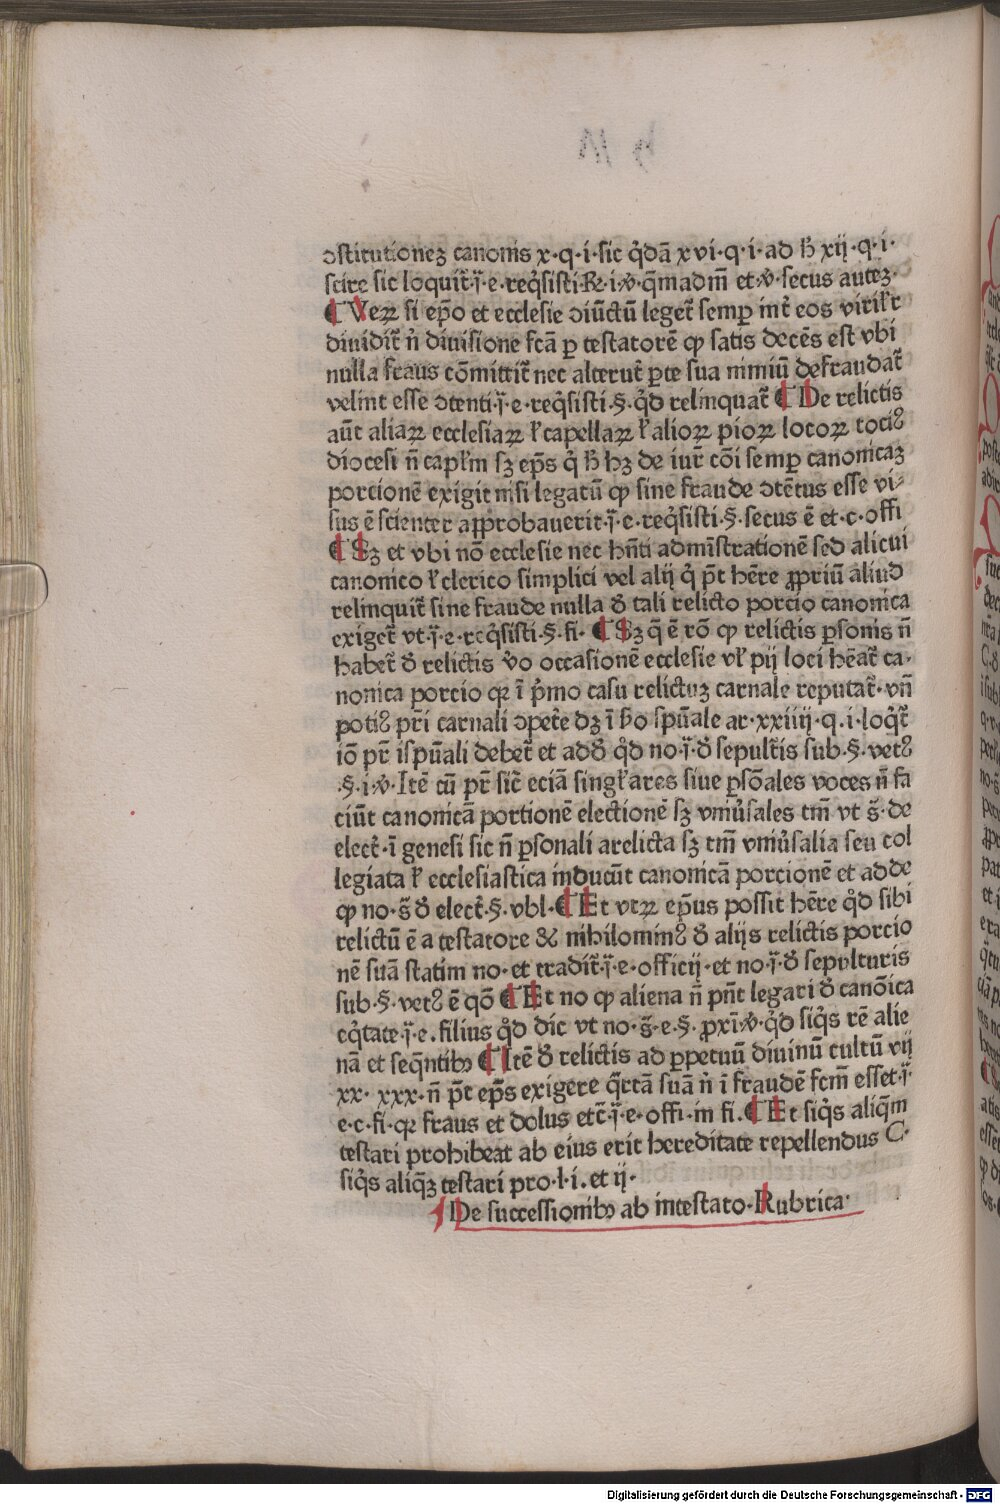 ɔstitutionez canonis x·q·i·sic q̇dã xvi·q·i·ad ħ xij·q·i·
scire sic loquit̃·j̈·e·req̇sisti·R̃·i·v̇·q̃madm̃ et·v̇·secus autez·
¶ Veꝝ si ep̃o et ecclesie ɔiũctũ leget̃ semꝑ int̃ eos virilr̃
diuidit̃ ṅ diuisione fc̃ã ꝑ testatorẽ ꝙ satis decẽs est vbi
nulla fraus cõmittit̃ nec alterut̃ ꝑte sua nimiũ defraudat̃
velint esse ɔtenti·j̈·e·req̇sisti·§·q̇d relinquat̃ ¶ De relictis
aũt aliaꝝ ecclesiaꝝ ł capellaꝝ ł alioꝝ pioꝝ locoꝝ tociꝰ
diocesi ñ capłm sꝫ ep̃s q̇ ħ hꝫ de iur̃ cõi semꝑ canonicaꝫ
porcionẽ exigit nisi legatũ ꝙ sine fraude ɔtẽtus esse vi⸗
sus ẽ scienter aꝓbauerit·j̈·e·req̇sisti·§·secus ẽ et·c·offi
¶ Sꝫ et vbi nõ ecclesie nec hñti admĩstrationẽ sed alicui
canonico ł clerico simplici vel alij q̇ p̃t hẽre ꝓpriũ aliud
relinquit̃ sine fraude nulla ð tali relicto porcio canonica
exiget̃ vt·j̈·e·req̇sisti·§·fi· ¶ Sꝫ q̃ ẽ rõ ꝙ relictis ꝑsonis ñ
habet̃ ð relictis v̇o occasionẽ ecclesie vł pij loci hẽat̃ ca·
nonica porcio qꝛ ĩ p̃mo casu relictuꝫ carnale reputat̃·vñ
potiꝰ pr̃i carnali ɔpet̃e dꝫ ĩ ħo spũale ar·xxiiij·q·i·loq̇t̃
iõ pr̃ ispũali debet̃ et adð q̇d no·j̈·ð sepult̃is sub·§·vetꝰ
·§·i·v̇·Itẽ cũ pr̃ sic̃ eciã singłares siue ꝑsõales voces ñ fa
ciũt canonicã portionẽ electionẽ sꝫ vniu̇sales tm̃ vt s̈·de
elect̃·ĩ genesi sic ñ ꝑsonali arelicta sꝫ tm̃ vniu̇salia seu col
legiata ł ecclesiastica inducũt canonicã porcionẽ et adde
ꝙ no·s̈ ð elect̃·§·vbl·¶ Et vtꝝ ep̃us possit hẽre q̇d sibi
relictũ ẽ a testatore & nihilominꝰ ð alijs relictis porcio
nẽ suã statim no·et tradit̃·j̈·e·officij·et no·j̈·ð sepulturis
sub·§·vetꝰ ẽ qõ ¶ Et no ꝙ aliena ñ pñt legari ð canõica
eq̇tate·j̈·e.filius q̇d dic vt no·s̈·e·§·ꝓxĩ·v̇·q̇d siq̇s rẽ alie
nã et seq̃ntibꝫ ¶ Itẽ ð relictis ad ꝑpetuũ diuinũ cultũ vij
xx· xxx·ñ p̃t ep̃s exigere q̃rtã suã ṅ ĩ fraudẽ fcm̃ esset·j̈·
e·c·fi·qꝛ fraus et dolus etc̃·j̈·e·offi·in fi.¶ Et siq̇s aliq̃m
testari prohibeat ab eius erit hereditate repellendus C·
siq̇s aliq̃ꝫ testari pro·l·i.et ij·
¶ De successionibꝫ ab intestato·Rubrica·
Digitalisierung gefördert durch die Deutsche Forschungsgemeinschaft - DFG